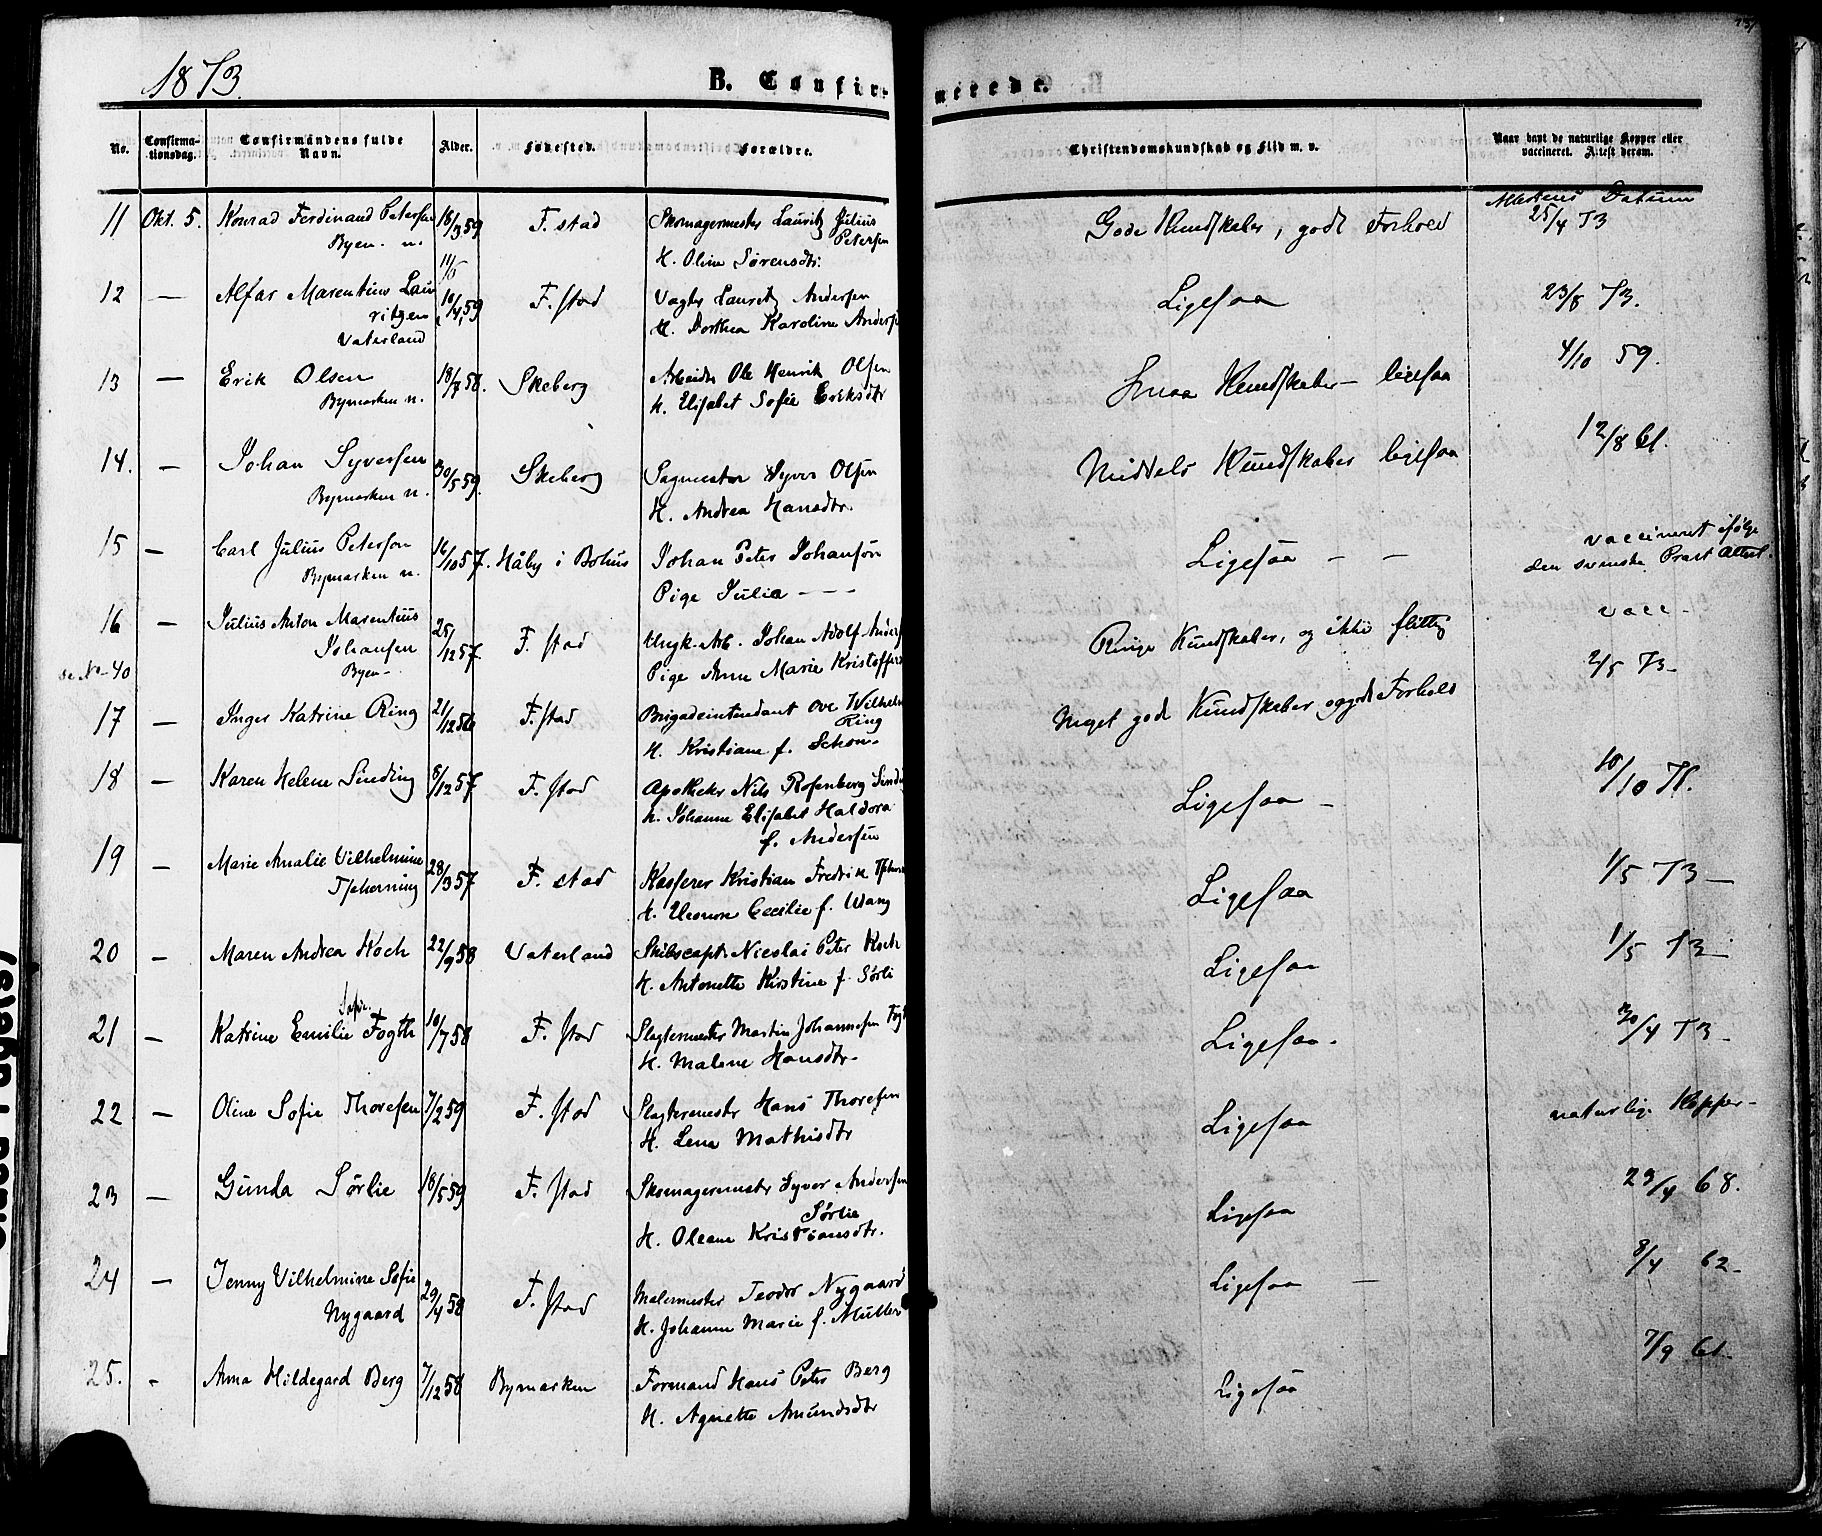 1873.
B. Confirmerede.
No.
Confirmationsdag.
Confirmandens fulde Navn.
Alder.
Fødested.
Forældre.
Christendomskundskab og Flid m. v.
Naar havt de naturlige Kopper eller vaccineret. Attest derom.
Attestens Datum
11 Okt. 5. Konrad Ferdinand Petersen 18/3 59 F. stad Skomagermester Lauritz Julius Gode Kundskaber, godt Forhold 25/4 73
Byen. n. Petersen
H. Oline Sørensdtr.
12 — Alfar Marentius Lau 10/4 59 F. stad Vagter Lauritz Andersen Ligesaa 23/8 73.
ritzen H. Dorthea Karoline Anders
Vaterland
13 — Erik Olsen 18/7 58. Skeberg Arbeider Ole Henrik Olsen Smaa Kundskaber – ligesaa 4/10 59.
Bymarken n. H. Elisabet Sofie Eriksdtr
14. — Johan Syversen 30/5 59. Skeberg Sagmester Syver Olsen Middels Kundskaber ligesaa 12/8 61.
Bymarken n. H. Andrea Hansdtr.
15 — Carl Julius Peterson 16/10 57. Håby i Bohus Johan Peter Johanson Ligesaa – – vaccineret ifølge
Bymarken n. Pige Julia – – – den svenske Præst Attest.
16 — Julius Anton Marentius 25/12 57 F. stad Johan Adolf Anders Ringe Kundskaber, og ikke flittig vacc –
Johansen Pige Anne Marie Kristoffers
Byen –
se No 40
17 — Inger Katrine Ring 21/12 56 F. stad Brigadeintendant Ove Wilhelm Meget gode Kundskaber og godt Forhold 2/5 73 –
Ring
H. Kristiane f. Schou –
18 — Karen Helene Sinding 8/12 57 F. stad Apotheker Nils Rosenberg Sindi Ligesaa – 10/10 71.
H. Johanne Elisabet Haldora
f. Andersen
19 — Marie Amalie Vilhelmine 28/3 57 F. stad Kasserer Kristian Fredrik Tschern Ligesaa 1/5 73 –
Tscherning H. Eleonore Cecilie f. Wang
20 — Maren Andrea Koch 22/9 58 Vaterland Skibscapt. Nicolai Peter Koch Ligesaa 1/5 73 –
H. Antonette Kirstine f. Sørli
Sofie
21 — Katrine Emilie Fogth 10/7 58 F. stad Slagtermester Martin Johannesen Fogt Ligesaa. 30/4 73 –
H. Malene Hansdtr.
22 — Oline Sofie Thoresen 7/2 59 F. stad Slagtermester Hans Thoresen Ligesaa naturlige Kopper –
H. Lena Mathisdtr
23 — Gunda Sørlie 18/5 59 F. stad Skomagermester Syver Andersen Ligesaa 29/4 68.
Sørlie
H. Oleane Kristiansdtr.
24 — Jenny Vilhelmine Sofie 29/4 58 F. stad Malermester Teodor Nygaard Ligesaa — 8/4 62 –
Nygaard H. Johanne Marie f. Müller
25. – Anna Hildegard Berg 7/12 58 Bymarken Formand Hans Peter Berg Ligesaa 7/9 61.
H. Agnette Amundsdtr